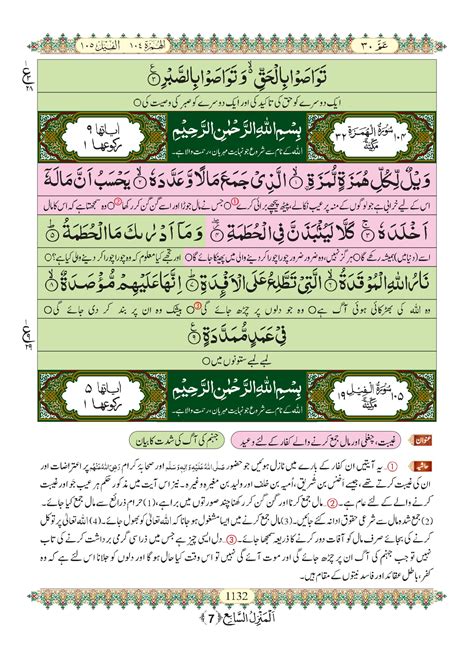 عَمَّ ٣٠
الهُمَزَة ١٠٤ الفِيل ١٠٥
تَوَاصَوْا بِالْحَقِّ ۙ۬ وَ تَوَاصَوْا بِالصَّبْرِ ۠ ٣
ایک دوسرے کو حق کی تاکید کی اور ایک دوسرے کو صبر کی وصیت کی ○
١٠٤ سُوْرَةُ الْهُمَزَةِ مَكِّيَّةٌ ٣٢
بِسْمِ اللّٰهِ الرَّحْمٰنِ الرَّحِيْمِ
اللہ کے نام سے شروع جو نہایت مہربان، رحمت والا ہے۔
اٰیاتها ٩
رکوعها ١
وَيْلٌ لِّكُلِّ هُمَزَةٍ لُّمَزَةِ ۙ ١ الَّذِيْ جَمَعَ مَالًا وَّ عَدَّدَهٗ ۙ ٢ يَحْسَبُ اَنَّ مَالَهٗۤ
اس کے لیے خرابی ہے جو لوگوں کے منہ پر عیب نکالے، پیٹھ پیچھے برائی کرے ○ جس نے مال جوڑا اور اسے گن گن کر رکھا ○ وہ سمجھتا ہے کہ اس کا مال
اَخْلَدَهٗ ۚ ٣ كَلَّا لَيُنْۢبَذَنَّ فِي الْحُطَمَةِ ۖ ٤ وَ مَاۤ اَدْرٰىكَ مَا الْحُطَمَةُ ؕ ٥
اسے (دنیا میں) ہمیشہ رکھے گا ○ ہرگز نہیں، وہ ضرور ضرور چورا چورا کر دینے والی میں پھینکا جائے گا ○ اور تجھے کیا معلوم کہ وہ چورا چورا کر دینے والی کیا ہے؟ ○
نَارُ اللّٰهِ الْمُوْقَدَةُ ۙ ٦ الَّتِيْ تَطَّلِعُ عَلَى الْاَفْـِٕدَةِ ؕ ٧ اِنَّهَا عَلَيْهِمْ مُّؤْصَدَةٌ ۙ ٨
وہ اللہ کی بھڑکائی ہوئی آگ ہے ○ وہ جو دلوں پر چڑھ جائے گی ○ بیشک وہ ان پر بند کر دی جائے گی ○
فِيْ عَمَدٍ مُّمَدَّدَةٍ ۠ ٩
لمبے لمبے ستونوں میں ○
١٠٥ سُوْرَةُ الْفِيْلِ مَكِّيَّةٌ ١٩
بِسْمِ اللّٰهِ الرَّحْمٰنِ الرَّحِيْمِ
اللہ کے نام سے شروع جو نہایت مہربان، رحمت والا ہے۔
اٰیاتها ٥
رکوعها ١
عنوان غیبت، چغلی اور مال جمع کرنے والے کفار کے لئے وعید جہنم کی آگ کی شدت کا بیان
حاشیہ 1۔ یہ آیتیں ان کفار کے بارے میں نازل ہوئیں جو حضور صَلَّی اللہُ عَلَیْہِ وَاٰلِہٖ وَسَلَّم اور صحابۂ کرام رَضِیَ اللہُ عَنْہُم پر اعتراضات اور
ان کی غیبت کرتے تھے، جیسے اَخنس بن شریق، اُمیہ بن خلف اور ولید بن مغیرہ وغیرہ۔ نیز اس آیت میں مذکور حکم ہر غیبت اور عیب جوئی
کرنے والے کے لئے عام ہے۔ 2۔ مال جمع کرنا اور گن گن کر رکھنا چند صورتوں میں برا ہے، (1) حرام ذرائع سے مال جمع کیا جائے۔
(2) جمع شدہ مال سے شرعی حقوق ادا نہ کئے جائیں۔ (3) مال جمع کرنے میں ایسا مشغول ہو جانا کہ اللہ تعالیٰ کو بھول جائے۔ (4) اللہ تعالیٰ پر توکل
کرنے کی بجائے صرف مال کو آفات دور کرنے کا ذریعہ سمجھا جائے۔ 3۔ دل ایسی چیز ہے جس میں ذرا سی گرمی برداشت کرنے کی تاب
نہیں تو جب جہنم کی آگ ان پر چڑھ جائے گی اور موت آئے گی نہیں تو اس وقت کیا حال ہو گا اور دلوں کو جلانا اس لئے ہے کہ وہ
کفر، باطل عقائد اور فاسد نیتوں کے مقام ہیں۔
1132
اَلْمَنْزِلُ السَّابِعُ ﴿7﴾